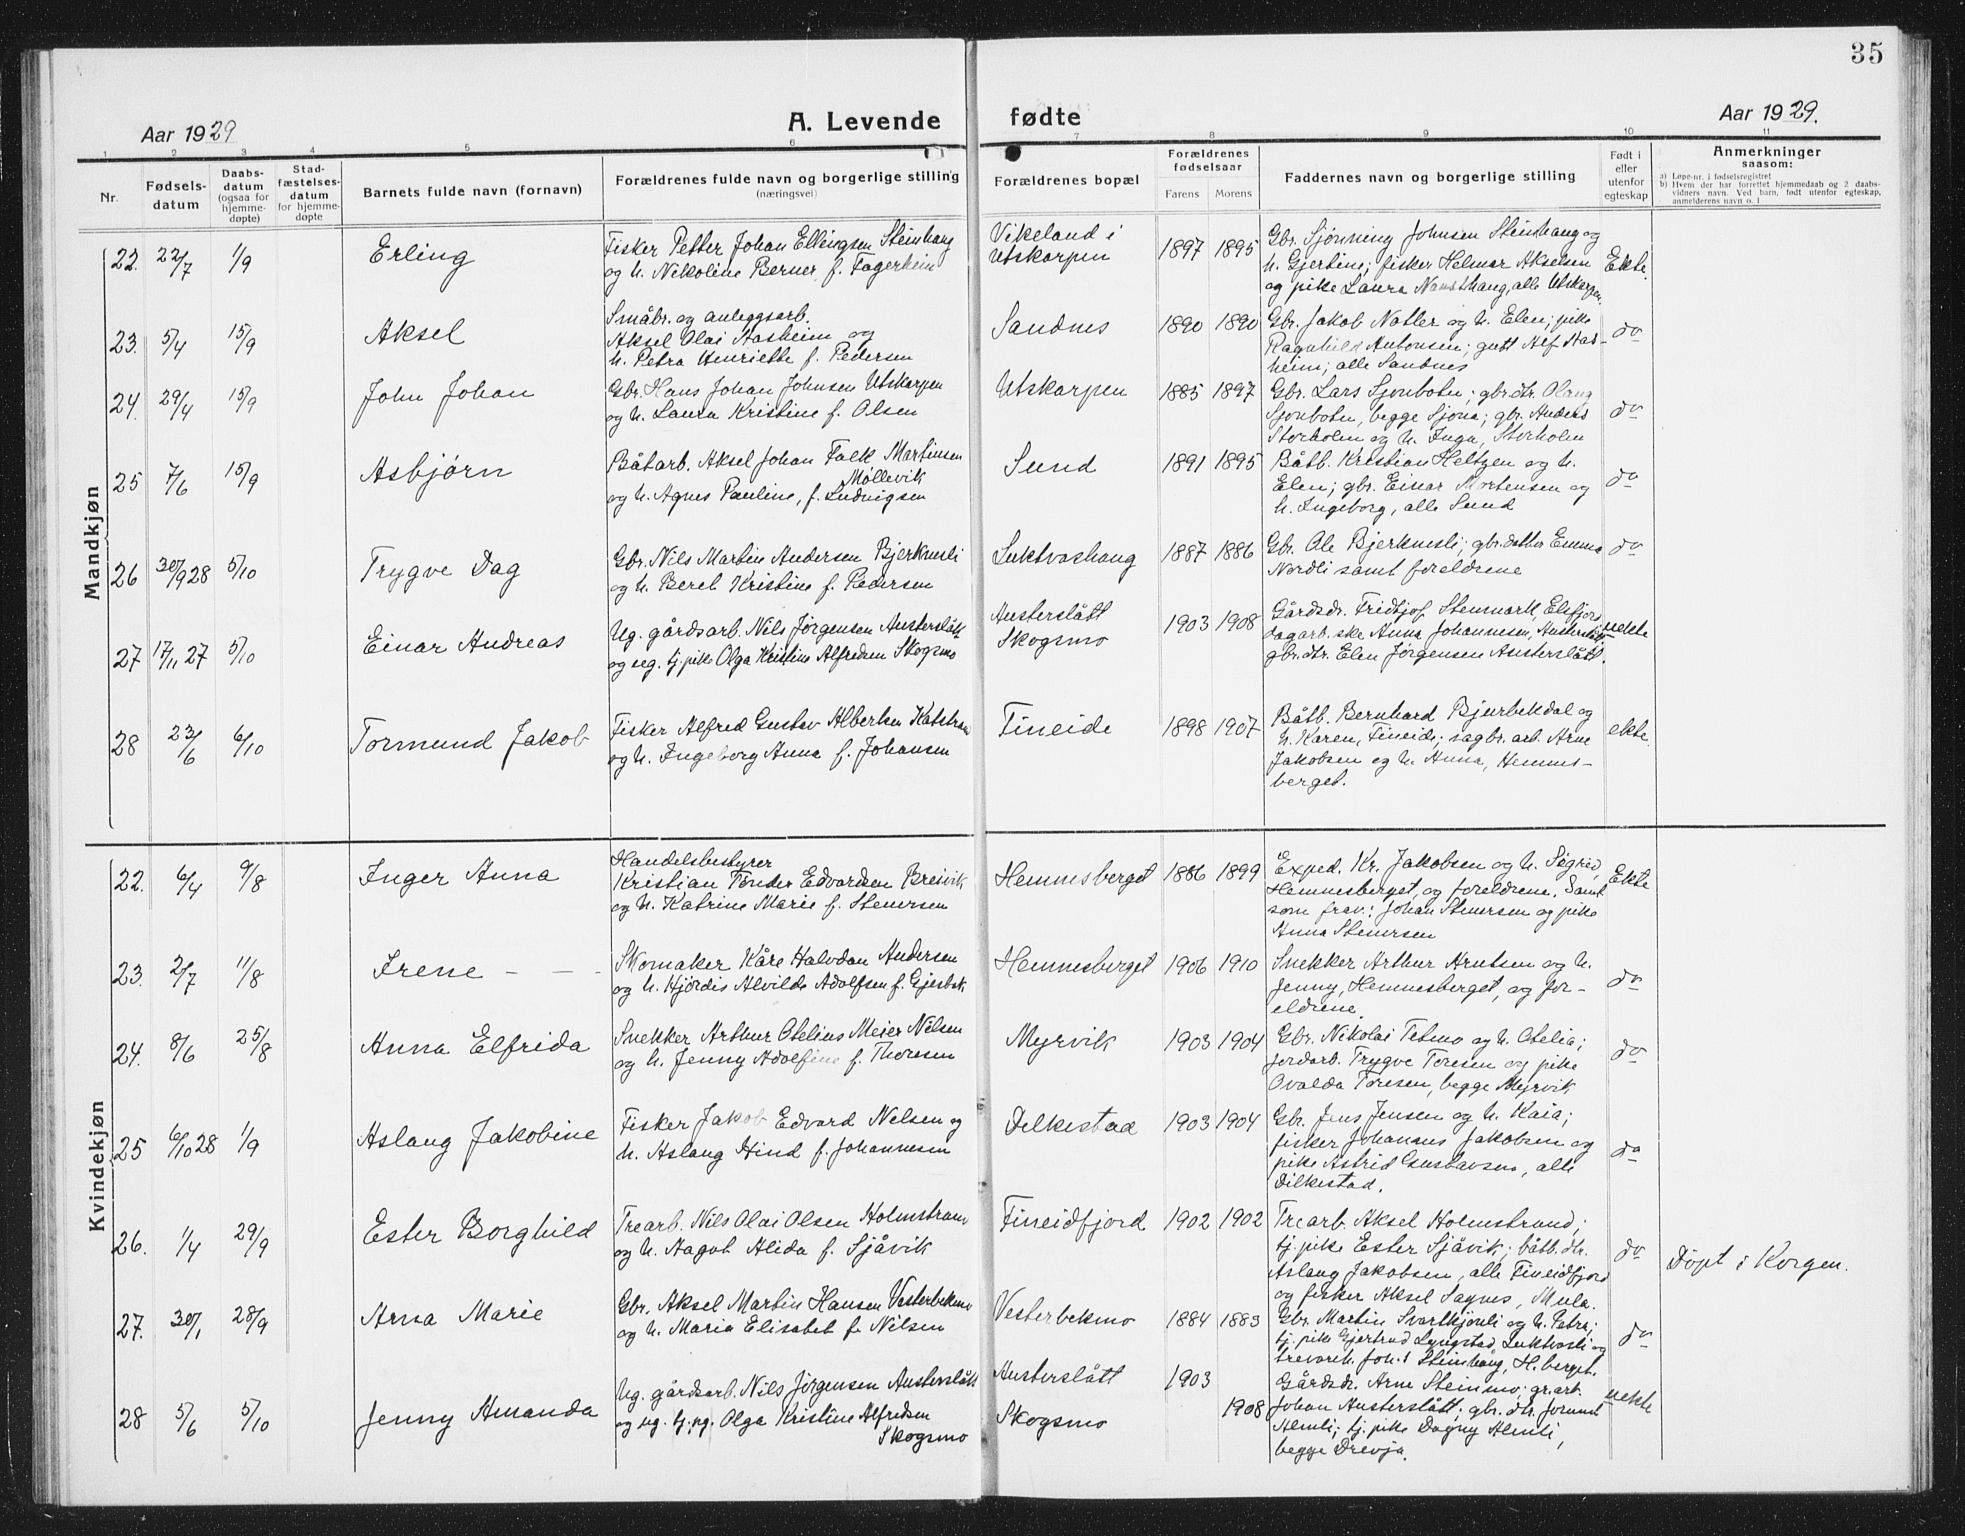 35
Aar 1929
A. Levende fødte
Aar 1929.
1 2 3 4 5 6 7 8 9 10 11
Nr.
Fødsels-
datum
Daabs-
datum
(ogsaa for
hjemme-
døpte)
Stad-
fæstelses-
datum
for hjemme-
døpte
Barnets fulde navn (fornavn)
Forældrenes fulde navn og borgerlige stilling
(næringsvei)
Forældrenes bopæl
Forældrenes
fødselsaar
Farens Morens
Faddernes navn og borgerlige stilling
Født i
eller
utenfor
egteskap
Anmerkninger
saasom:
a) Løpe-nr. i fødselsregistret
b) Hvem der har forrettet hjemmedaab og 2 daabs-
vidners navn. Ved barn, født utenfor egteskap,
anmelderens navn o. l
Mandkjøn
22. 22/7 1/9 Erling
Fisker Petter Johan Ellingsen Steinhaug
og h. Nikoline Berner f. Fagerheim
Vikeland i
Utskarpen
1897 1895
Gbr. Sjønning Johnsen Steinhaug og
h. Gjertine; fisker Helmer Akselsen
og pike Laura Nausthaug, alle Utskarpen.
Ekte.
23. 5/4 15/9 Aksel
Småbr. og anleggsarb.
Aksel Olai Aasheim og
h. Petra Henriette f. Pedersen
Sandnes
1890 1890
Gbr. Jakob Natler og h. Elen; pike
Ragnhild Antonsen; gutt Alf Aas-
heim; alle Sandnes
do
24. 29/4 15/9 John Johan
Gbr. Hans Johan Johnsen Utskarpen
og h. Laura Kristine f. Olsen
Utskarpen
1885 1897
Gbr. Lars Sjonboten; gbr.dtr. Olaug
Sjonboten, begge Sjona; gbr. Anders
Storholen og h. Inga, Storholen
do
25 7/6 15/9 Asbjørn
Båtarb. Aksel Johan Falk Martinsen
Møllevik
og h. Agnes Pauline, f. Ludvigsen
Sund
1891 1895
Båtb. Kristian Heltzen og h.
Elen; gbr. Einar Mortensen og
h. Ingeborg, alle Sund
do
26 30/9 28 5/10 Trygve Dag
Gbr. Nils Martin Andersen Bjerknesli
og h. Beret Kristine f. Pedersen
Luktvashaug
1887 1886
Gbr. Ole Bjerknesli; gbr.datter Emma
Nordli samt foreldrene
do
27 17/11 27 5/10 Einar Andreas
Ug. gårdsarb. Nils Jørgensen Austerslått
og ug. tj.pike Olga Kristine Alfredsen Skogsmo
Austerslått
Skogsmo
1903 1908
Gårdsdr. Fridtjof Stenmark, Elsfjord
dagarb.ske Anna Johannesen, Austerslått
gbr.dtr. Elen Jørgensen Austerslått.
uekte
28 23/6 6/10 Tormund Jakob
Fisker Alfred Gustav Albertsen
og h. Ingeborg Anna f. Johansen
Fineide
1898 1907
Båtb. Bernhard Bjurbekdal og
h. Karen, Fineide; sagbr.arb. Arne
Jakobsen og h. Anna, Hemnes-
berget.
ekte
Kvindekjøn
22. 6/4 9/8 Inger Anna
Handelsbestyrer
Kristian Tønder Edvardsen Breivik
og h. Katrine Marie f. Stenersen
Hemnesberget
1886 1899
Exped. Kr. Jakobsen og h. Sigrid,
Hemnesberget, og foreldrene. Samt
som frav.: Johan Stenersen og pike
Anna Stenersen
Ekte
23. 2/7 11/8 Irene - - -
Skomaker Kåre Halvdan Andersen
og h. Hjørdis Alvilde Adolfsen f. Gjesbak
Hemnesberget
1906 1910
Snekker Arthur Arntsen og h.
Jenny, Hemnesberget, og for-
eldrene.
do
24. 8/6 25/8 Anna Elfrida
Snekker Arthur Otelius Meier Nilsen
og h. Jenny Adolfine f. Thoresen
Myrvik
1903 1904
Gbr. Nikolai Tetmo og h. Otelia;
jordarb. Trygve Toresen og pike
Ovalda Toresen, begge Myrvik
do
25 6/10 28 1/9 Aslaug Jakobine
Fisker Jakob Edvard Nilsen og
h. Aslaug Hind f. Johannesen
Dilkestad
1903 1904
Gbr. Jens Jensen og h. Kaia;
fisker Johannes Jakobsen og
pike Astrid Gustavsen, alle
Dilkestad.
do
26. 1/4 29/9 Ester Borghild
Trearb. Nils Olai Olsen Holmstrand
og h. Aagot Alida f. Sjåvik
Fineidfjord
1902 1902
Trearb. Aksel Holmstrand;
tj.pike Ester Sjåvik; båtb.dtr.
Aslaug Jakobsen, alle Fineidfjord
og fisker Aksel Sagnes, Mula.
do
Døpt i Korgen.
27. 30/1 28/9 Arna Marie
Gbr. Aksel Martin Hansen Vesterbekmo
og h. Maria Elisabet f. Nilsen
Vesterbekmo
1884 1883
Gbr. Martin Svartkjønli og h. Petra;
tj.pike Gjertrud Lyngstad, Luktvasli og
Steinhaug, H.berget.
do
28 5/6 5/10 Jenny Amanda
Ug. gårdsarb. Nils Jørgensen Austerslått
og ug. tj.pg. Olga Kristine Alfredsen
Skogsmo
Austerslått
Skogsmo
1903
1908
Gårdsdr. Arne Steinmo; gr.arb.
Johan Austerslått; gbr.dtr. Jorunn
Almli; tj.pike Dagny Almli,
begge Drevja.
uekte